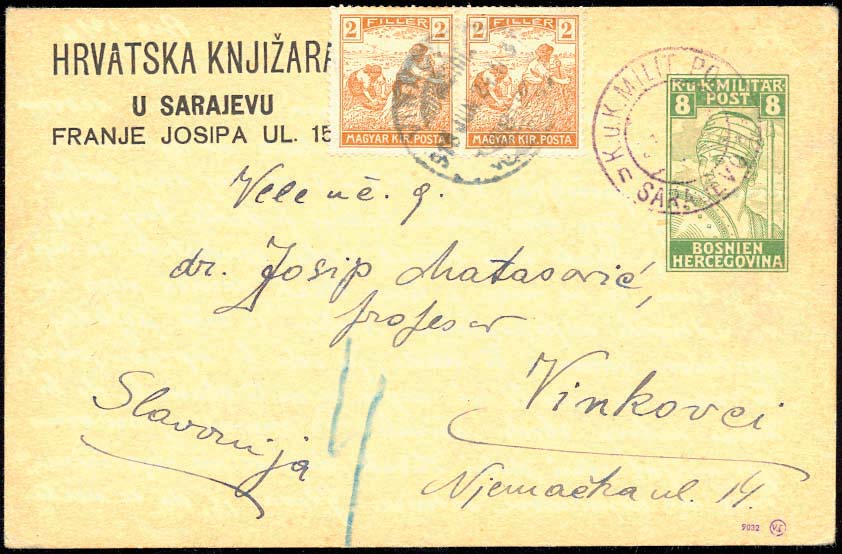 HRVATSKA KNJIŽARA
U SARAJEVU
FRANJE JOSIPA UL. 15
2 FILLÉR 2
MAGYAR KIR. POSTA
2 FILLÉR 2
MAGYAR KIR. POSTA
K.U.K. MILIT. PO
SARAJEVO
K.U.K. MILITÄR
8 POST 8
BOSNIEN
HERCEGOVINA
Vele uč. g.
dr. Josip Matasović,
profesor
Vinkovci
Slavonija
Njemačka ul. 14.
9032